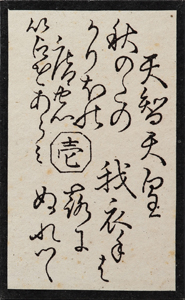 天智天皇
秋のたの
かりほの
庵の
苫をあらみ
我衣手は
露に
ぬれつゝ
壱